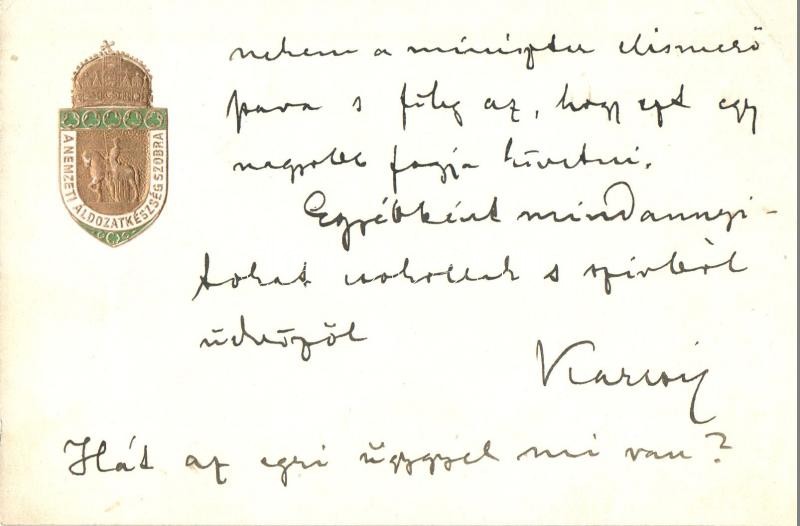 A NEMZETI ÁLDOZATKÉSZSÉG SZOBRA
nekem a miniszter elismerő
szava s főleg az, hogy ezt egy
nagyobb fogja követni.
Egyébként mindannyi-
tokat csókollak s szívből
üdvözöl
Hát az egri üggyel mi van?